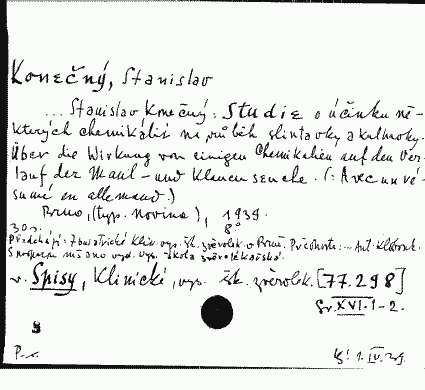 Konečný, Stanislav
... Stanislav Konečný: Studie o účinku ně-
kterých chemikálií na průběh slintavky a kulhavky.
Über die Wirkung von einigen Chemikalien auf den Ver-
lauf der Maul- und Klauenseuche. (: Avec un ré-
sumé en allemand.)
Brno, (typ. Novina), 1939.
30 s. 8°
Předchází: Z bujatrické klin. vys. šk. zvěrolék. v Brně. Přednosta: ... Ant. Klobouk.
v. Spisy, Klinické, vys. šk. zvěrolék. [77.298]
Gr. XVI. 1-2.